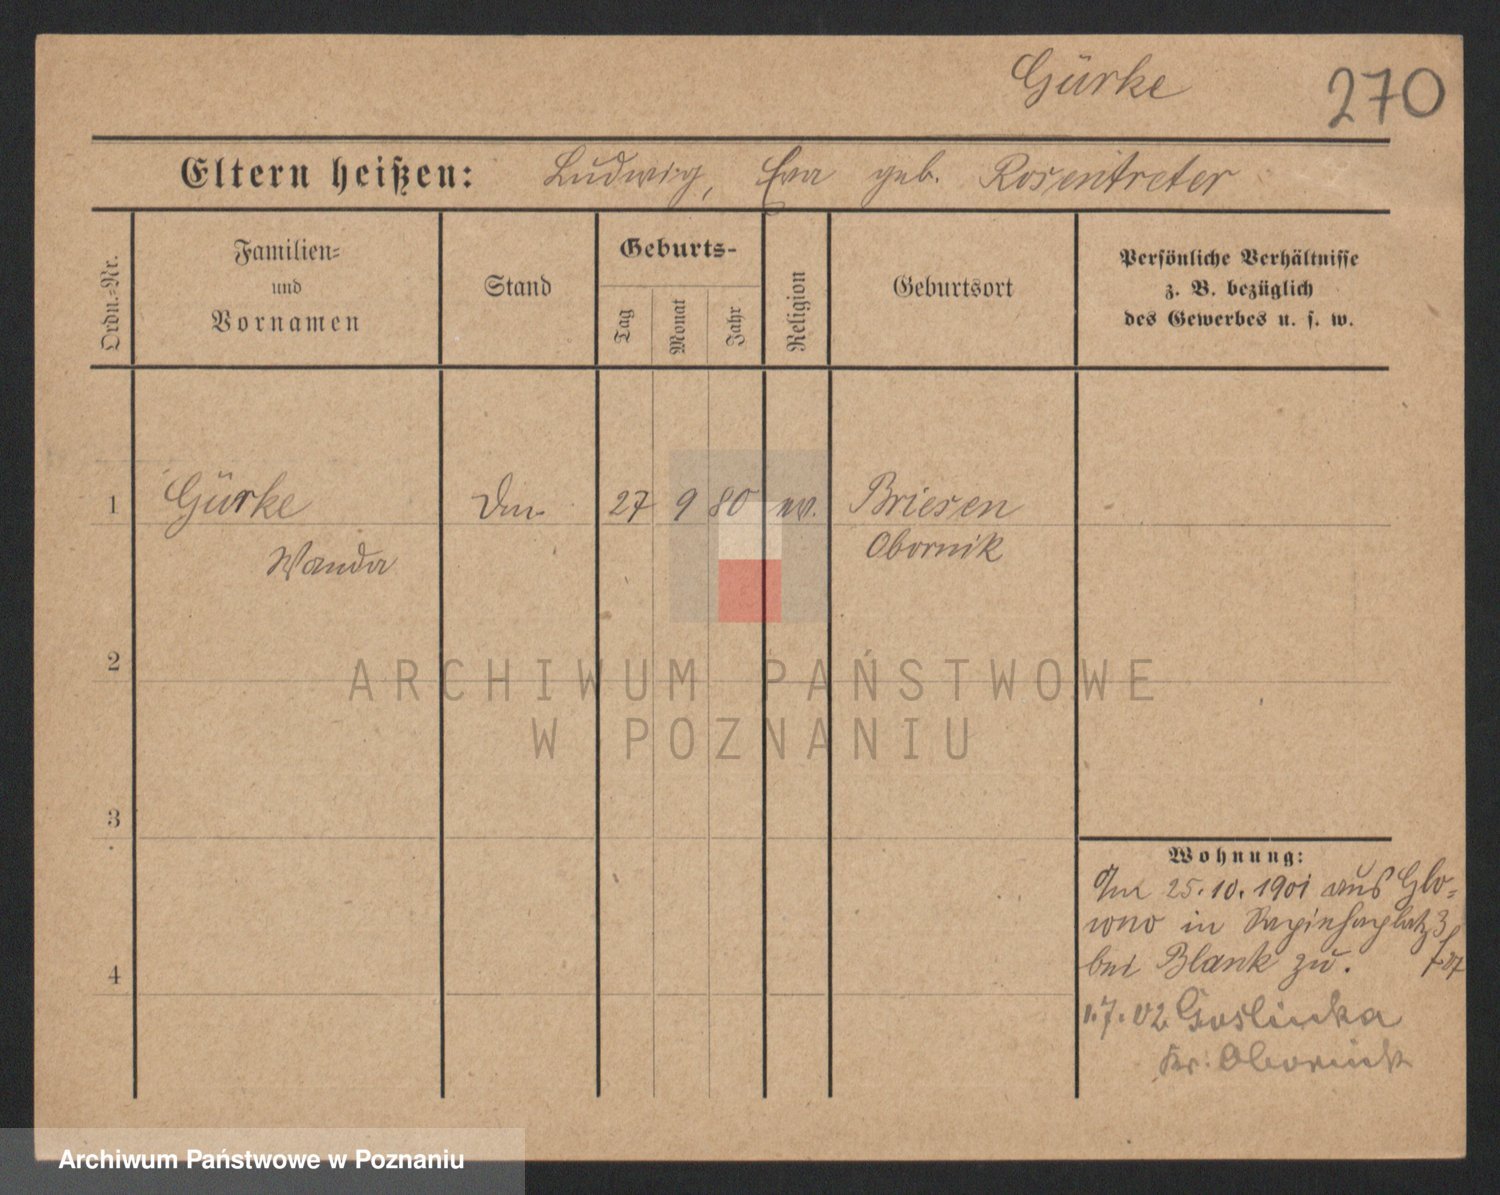 Gürke
270
Eltern heißen: Ludwig, Eva geb. Rosentreter
Ordn.=Nr.
Familien=
und
Vornamen
Stand
Geburts-
Tag
Monat
Jahr
Religion
Geburtsort
Persönliche Verhältnisse
z. B. bezüglich
des Gewerbes u. s. w.
1 Gürke 27 9 80 ev. Briesen
Wanda Obornik
2
3
4
ARCHIWUM PAŃSTWOWE
W POZNANIU
Wohnung:
Am 25.10.1901 aus Glo=
wno in Sapiehaplatz 3
bei Blank zu.
1.7.02 Goslinka
Kr. Obornik
Archiwum Państwowe w Poznaniu